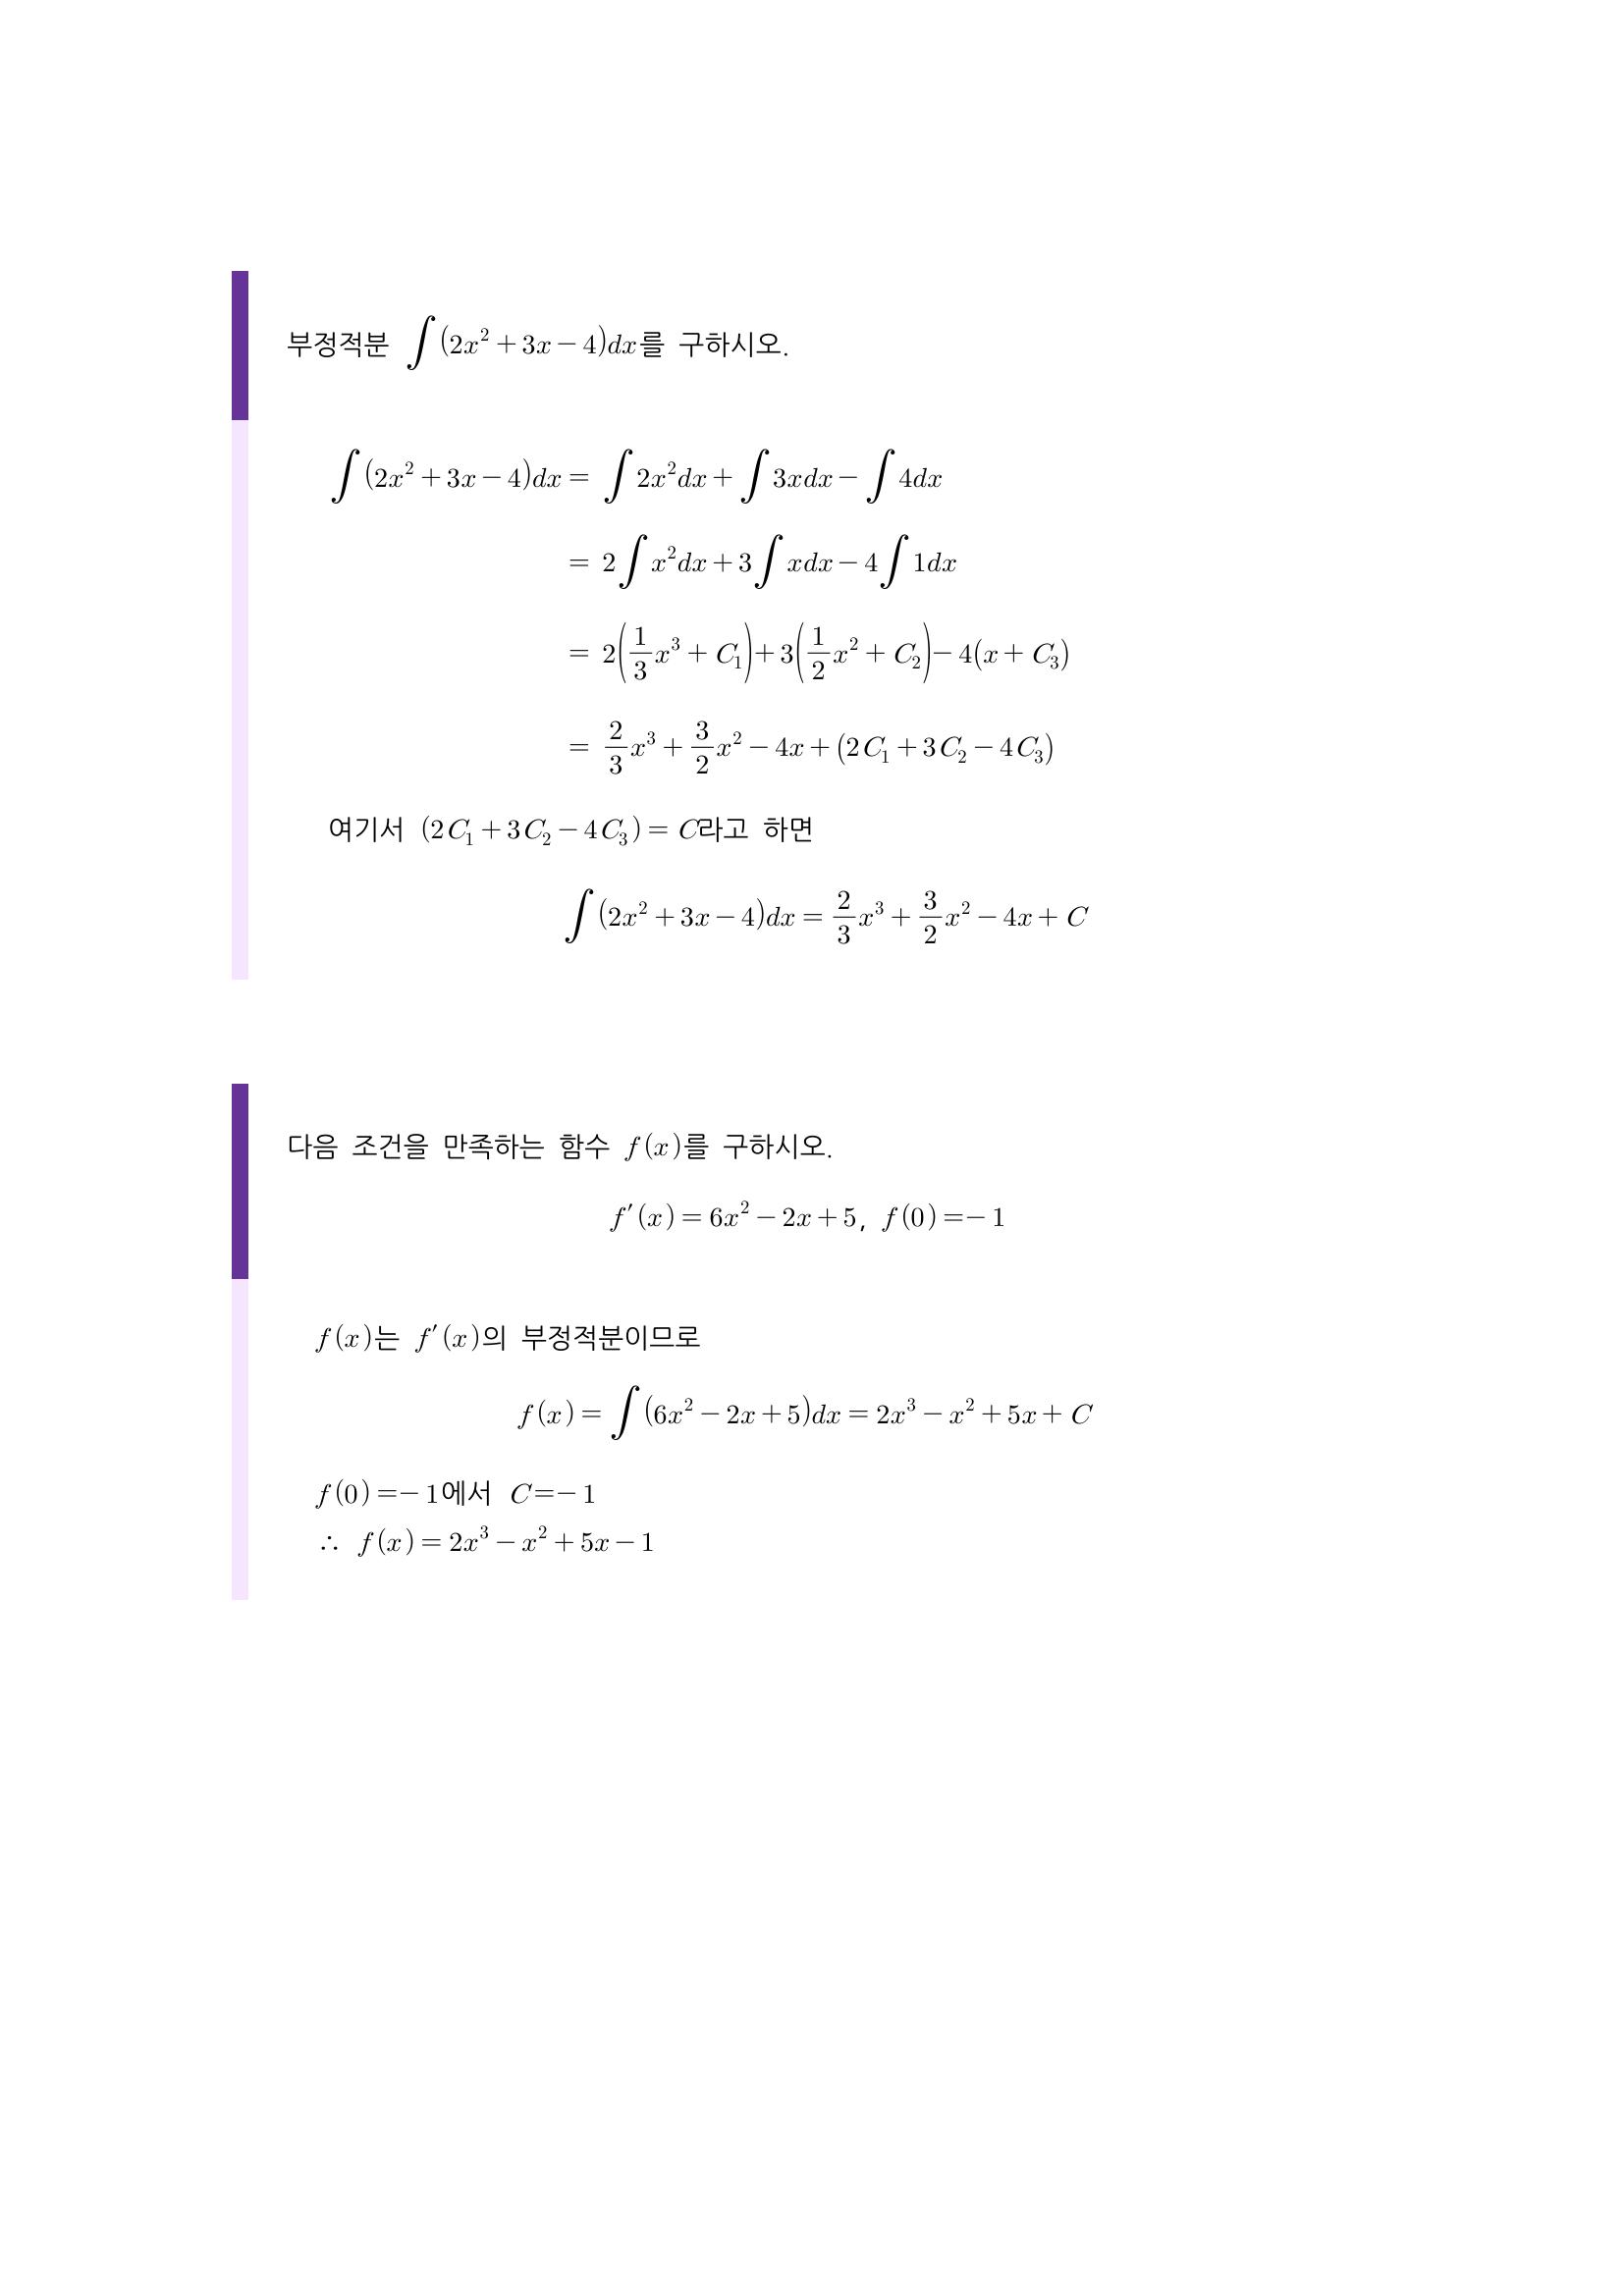 부정적분 ∫(2x² + 3x − 4)dx를 구하시오.
∫(2x² + 3x − 4)dx = ∫2x²dx + ∫3xdx − ∫4dx
= 2∫x²dx + 3∫xdx − 4∫1dx
= 2(1/3 x³ + C₁) + 3(1/2 x² + C₂) − 4(x + C₃)
= 2/3 x³ + 3/2 x² − 4x + (2C₁ + 3C₂ − 4C₃)
여기서 (2C₁ + 3C₂ − 4C₃) = C라고 하면
∫(2x² + 3x − 4)dx = 2/3 x³ + 3/2 x² − 4x + C
다음 조건을 만족하는 함수 f(x)를 구하시오.
f′(x) = 6x² − 2x + 5, f(0) = −1
f(x)는 f′(x)의 부정적분이므로
f(x) = ∫(6x² − 2x + 5)dx = 2x³ − x² + 5x + C
f(0) = −1에서 C = −1
∴ f(x) = 2x³ − x² + 5x − 1